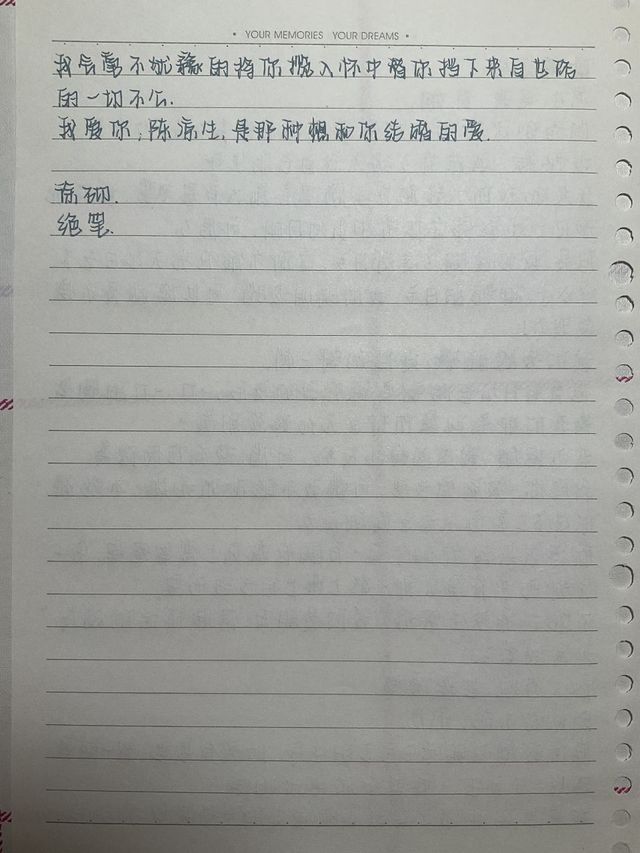 • YOUR MEMORIES YOUR DREAMS •
我会毫不犹豫的将你拥入怀中替你挡下来自世俗
的一切不公.
我爱你,陈凉生,是那种想和你结婚的爱.
绝笔.